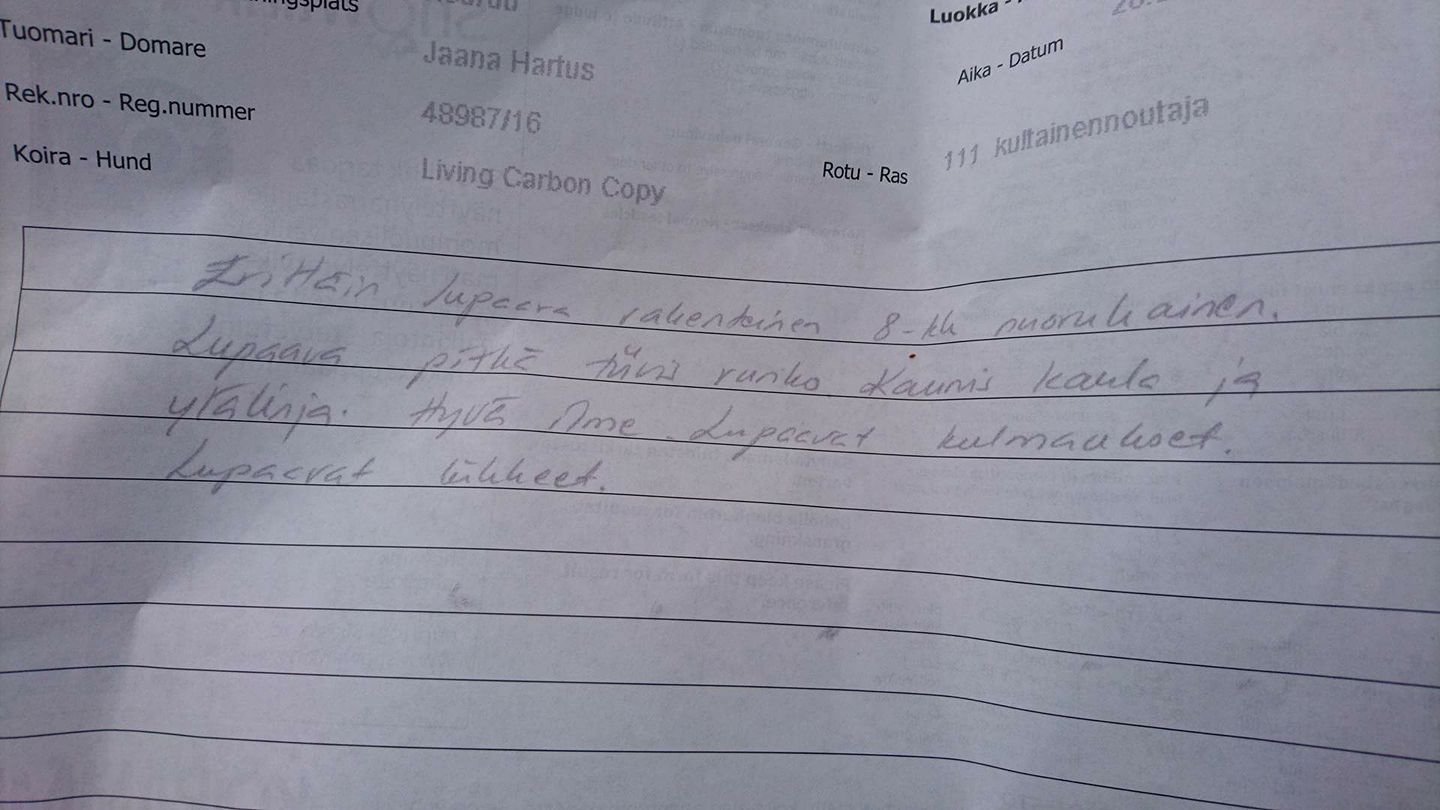 ningsplats
Luokka -
Tuomari - Domare Jaana Hartus
Aika - Datum
Rek.nro - Reg.nummer 48987/16
Koira - Hund Living Carbon Copy
Rotu - Ras 111 kultainennoutaja
Erittäin lupaava rakenteinen 8-kk nuorukainen.
Lupaava pitkä tiivis runko. Kaunis kaula ja
ylälinja. Hyvä ilme. Lupaavat kulmaukset.
Lupaavat liikkeet.